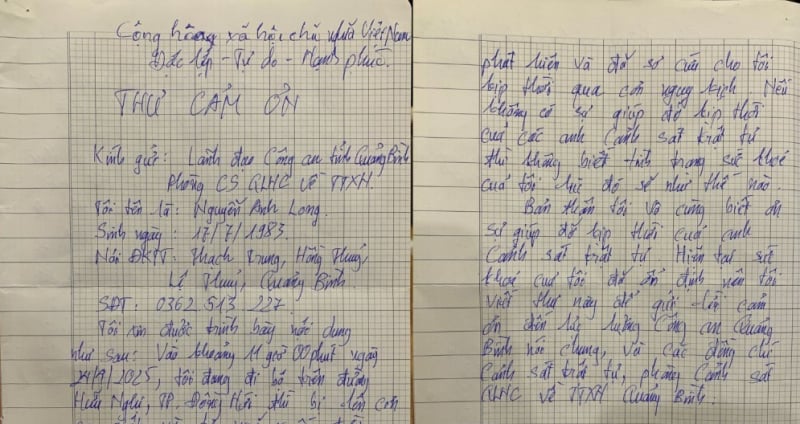 Cộng hòa xã hội chủ nghĩa Việt Nam
Độc lập - Tự do - Hạnh phúc.
THƯ CẢM ƠN
Kính gửi: Lãnh đạo Công an tỉnh Quảng Bình
Phòng CS QLHC về TTXH.
Tôi tên là: Nguyễn Anh Long.
Sinh ngày: 17/7/1983.
Nơi ĐKTT: Thạch Trung, Hồng Thuỷ,
Lệ Thuỷ, Quảng Bình.
SĐT: 0362 513 227.
Tôi xin được trình bày nội dung
như sau: Vào khoảng 11 giờ 00 phút ngày
/2025, tôi đang đi bộ trên đường
Hữu Nghị, TP. Đồng Hới thì bị lên cơn
phát hiện và đã sơ cứu cho tôi
kịp thời qua cơn nguy kịch. Nếu
không có sự giúp đỡ kịp thời
của các anh Cảnh sát trật tự
thì không biết tình trạng sức khoẻ
của tôi lúc đó sẽ như thế nào.
Bản thân tôi vô cùng biết ơn
sự giúp đỡ kịp thời của anh
Cảnh sát trật tự. Hiện tại sức
khoẻ của tôi đã ổn định nên tôi
viết thư này để gửi lời cảm
ơn đến lực lượng Công an Quảng
Bình nói chung, và các đồng chí
Cảnh sát trật tự, phòng Cảnh sát
QLHC về TTXH Quảng Bình.